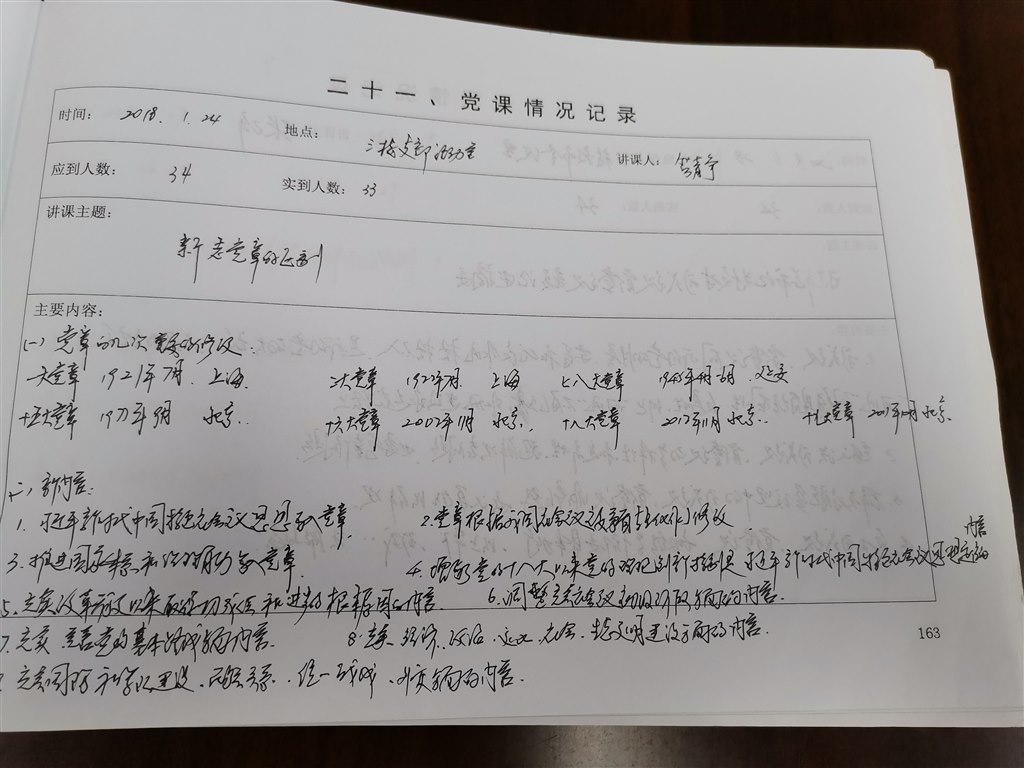 二十一、党课情况记录
时间： 2018. 1. 24 地点： 三楼支部活动室 讲课人：
应到人数： 34 实到人数： 33
讲课主题：
新老党章的区别
主要内容：
(一) 党章的九次重要的修改
一大党章 1921年7月. 上海 二大党章 1922年7月. 上海 七大党章 1945年4月-6月. 延安
十五大党章 1997年9月 北京. 十六大党章 2002年11月 北京. 十八大党章 2012年11月 北京. 十九大党章 2017年10月 北京.
(二) 新内容:
1. 习近平新时代中国特色社会主义思想写入党章 2. 党章根据我国社会主义主要矛盾变化作了修改
3. 推进国家 和治理 写入党章. 4. 增写党的十八大以来党的理论创新 习近平新时代中国特色社会主义思想 内容
5. 充实改革开放以来取得一切成绩和进步的根本原因的内容. 6. 调整充实方面的内容.
7. 充实 党的基本路线方面内容. 8. 充实 经济、政治、文化、社会、生态文明建设方面的内容.
充实国防和军队建设、民族关系、统一战线、外交方面的内容.
163